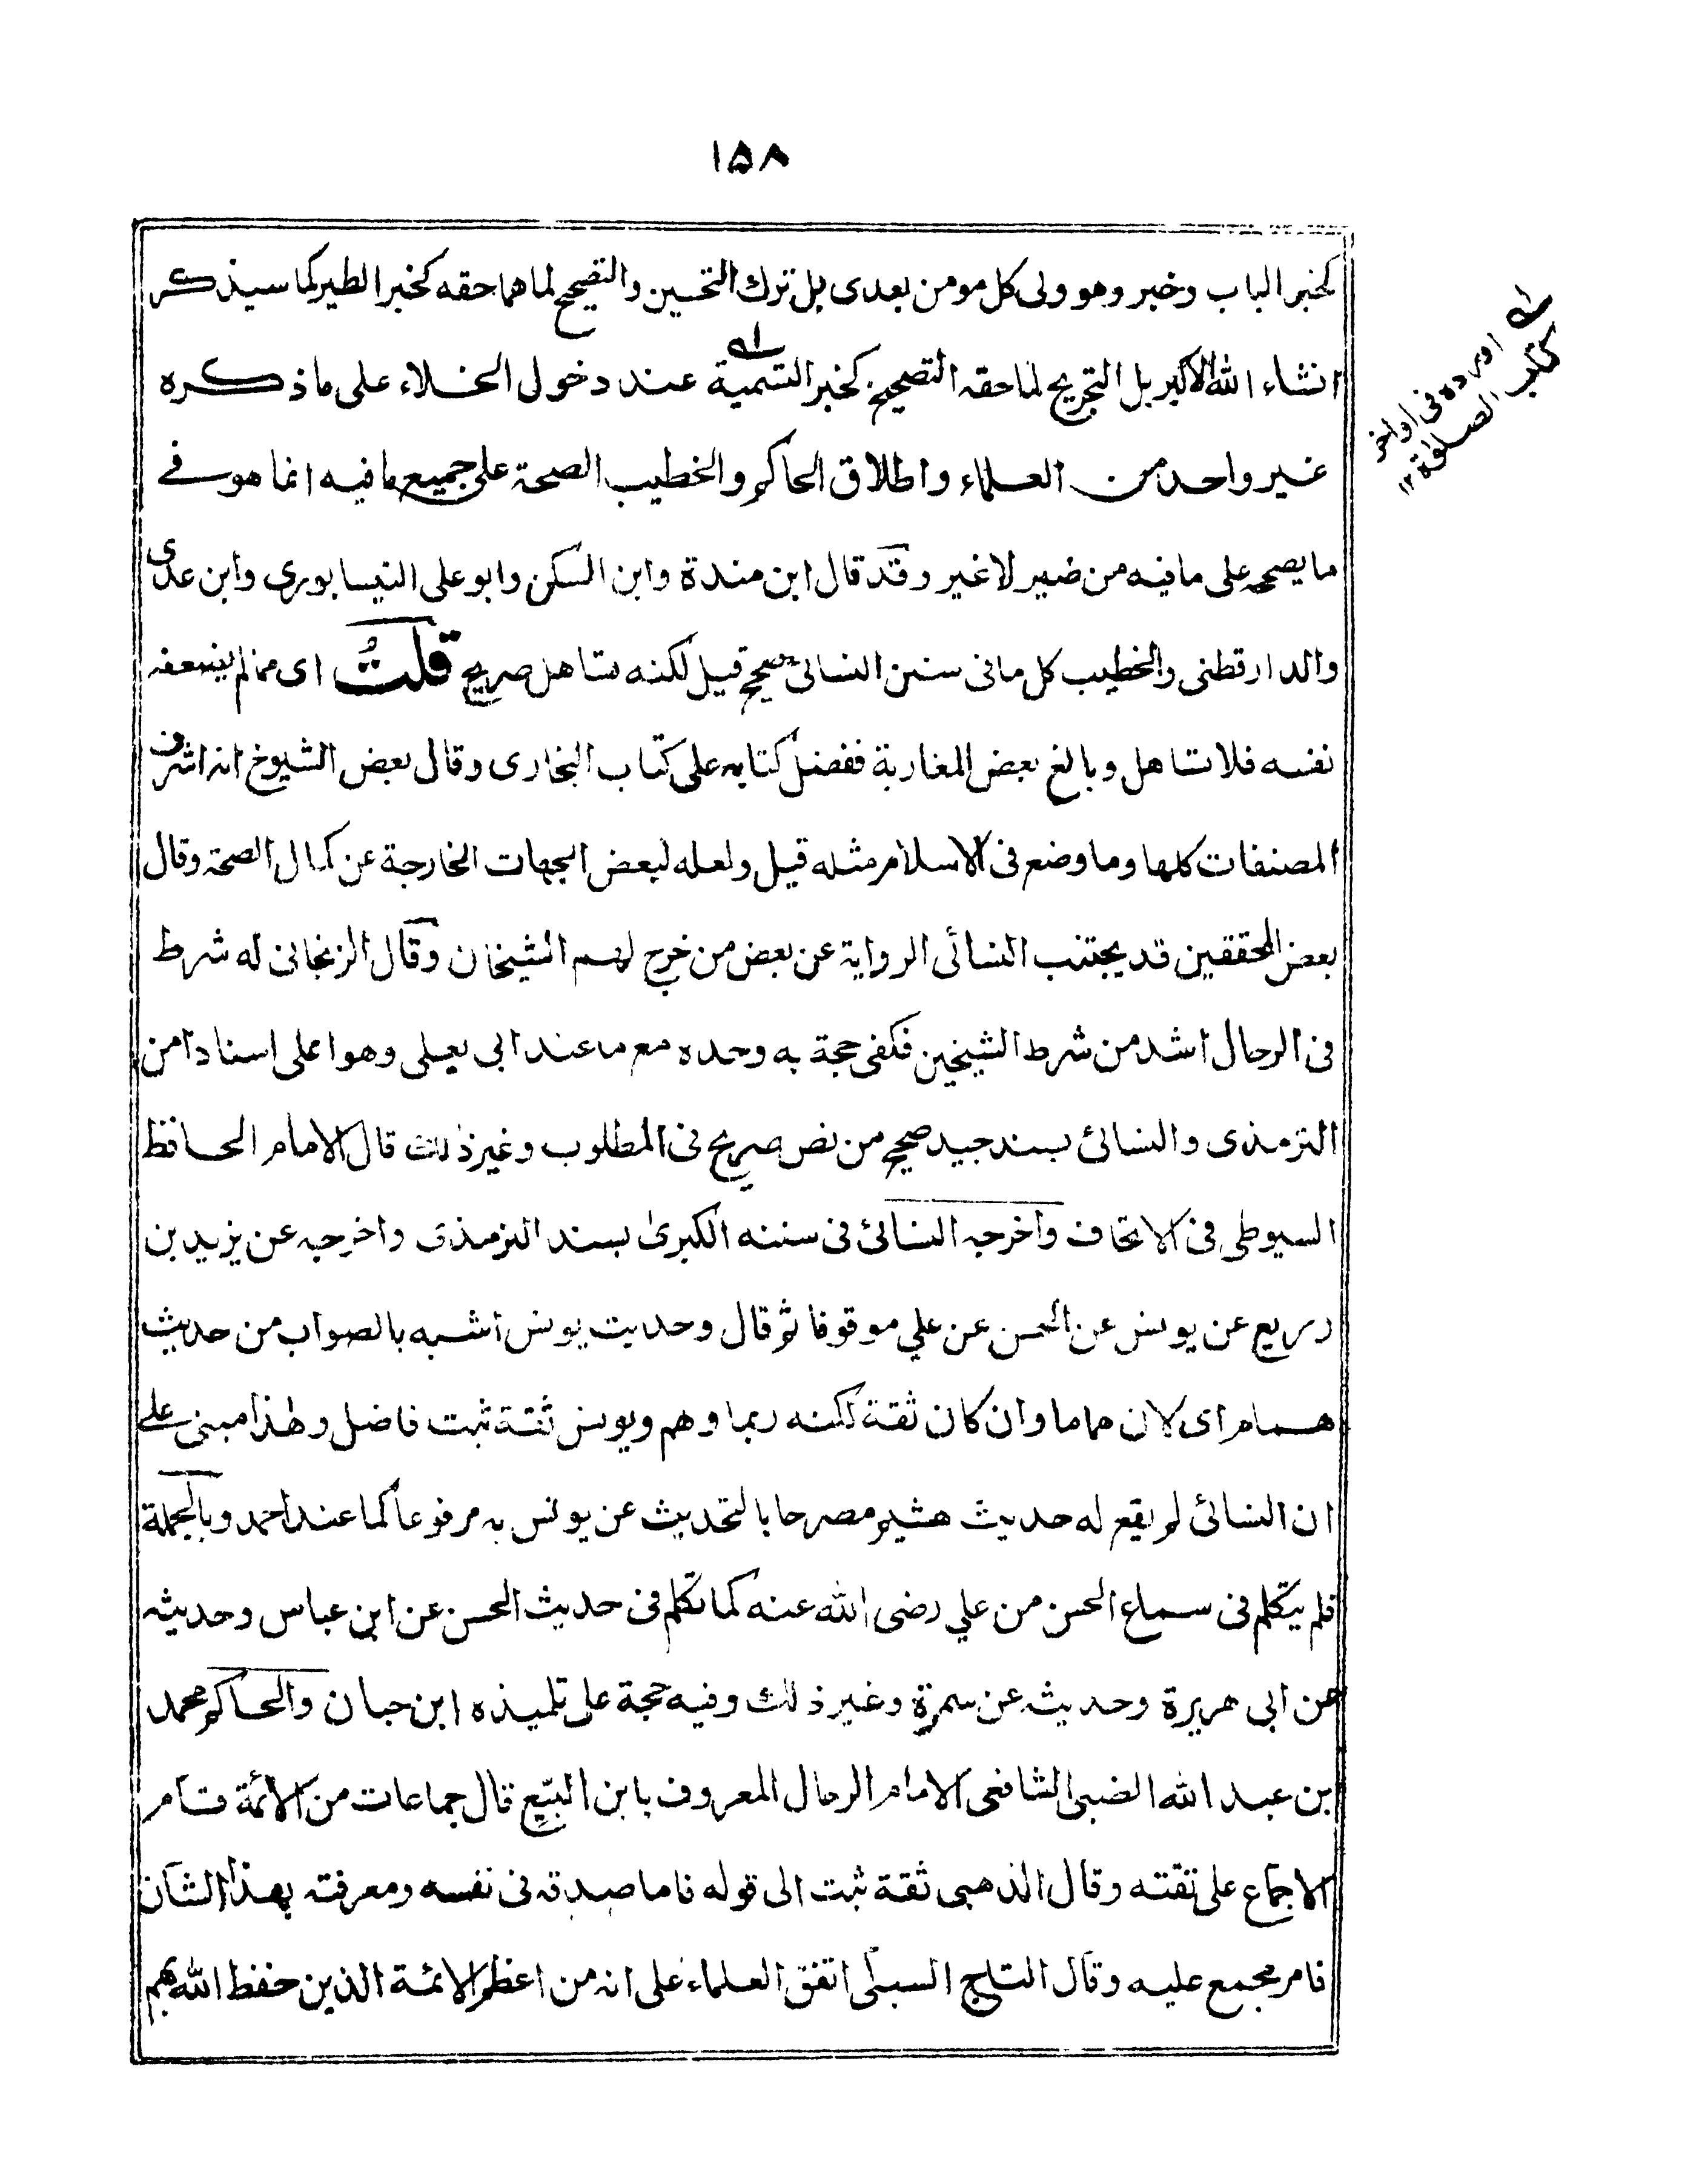 ١٥٨
كخبر الباب وخبر وهو ولى كل مومن بعدى بل ترك التحسين والتصحيح لما هما حقه كخبر الطير كما سيذكر
انشاء الله الاكبر بل التجريح لما حقه التصحيح كخبر التسمية عند دخول الخلاء على ما ذكره
غير واحد من العلماء واطلاق الحاكم والخطيب الصحة على جميع ما فيه انما هو فى
ما يصحح على ما فيه من ضير لا غير وقد قال ابن مندة وابن السكن وابو على النيسابورى وابن عدى
والدارقطنى والخطيب كل ما فى سنن النسائى صحيح قيل لكنه تساهل صريح قلتُ اى مما لم يضعفه
نفسه فلا تساهل وبالغ بعض المغاربة ففضل كتابه على كتاب البخارى وقال بعض الشيوخ انه اشرف
المصنفات كلها وما وضع فى الاسلام مثله قيل ولعله لبعض الجهات الخارجة عن كمال الصحة وقال
بعض المحققين قد يجتنب النسائى الرواية عن بعض من خرج لهم الشيخان وقال الزنجانى له شرط
فى الرجال اشد من شرط الشيخين فكفى حجة به وحده مع ما عند ابى يعلى وهو اعلى اسنادا من
الترمذى والنسائى بسند جيد صحيح من نص صريح فى المطلوب وغير ذلك قال الامام الحافظ
السيوطى فى الاتحاف واخرجه النسائى فى سننه الكبرى بسند الترمذى واخرجه عن يزيد بن
زريع عن يونس عن الحسن عن علي موقوفا ثم قال وحديث يونس اشبه بالصواب من حديث
همام اى لان هماما وان كان ثقة لكنه ربما وهم ويونس ثقة ثبت فاضل وهذا مبنى على
ان النسائى لم يقع له حديث هشيم مصرحا بالتحديث عن يونس به مرفوعا كما عند احمد وبالجملة
فلم يتكلم فى سماع الحسن من علي رضى الله عنه كما تكلم فى حديث الحسن عن ابن عباس وحديثه
عن ابى هريرة وحديثه عن سمرة وغير ذلك وفيه حجة على تلميذه ابن حبان والحاكم محمد
بن عبد الله الضبى الشافعى الامام الرحال المعروف بابن البيّع قال جماعات من الائمة قام
الاجماع على ثقته وقال الذهبى ثقة ثبت الى قوله فاما صدقه فى نفسه ومعرفته بهذا الشان
فامر مجمع عليه وقال التاج السبكى اتفق العلماء على انه من اعظم الائمة الذين حفظ الله بهم
اورده فى اواخر
كتاب الصلوة ١٢